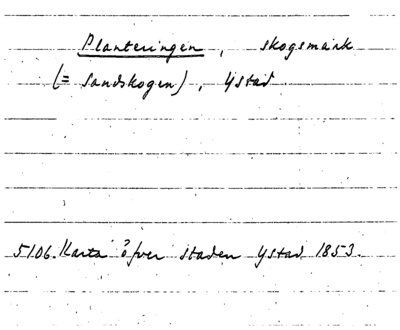 Planteringen, skogsmark
(= Sandskogen), Ystad
5106. Karta öfver staden Ystad 1853.